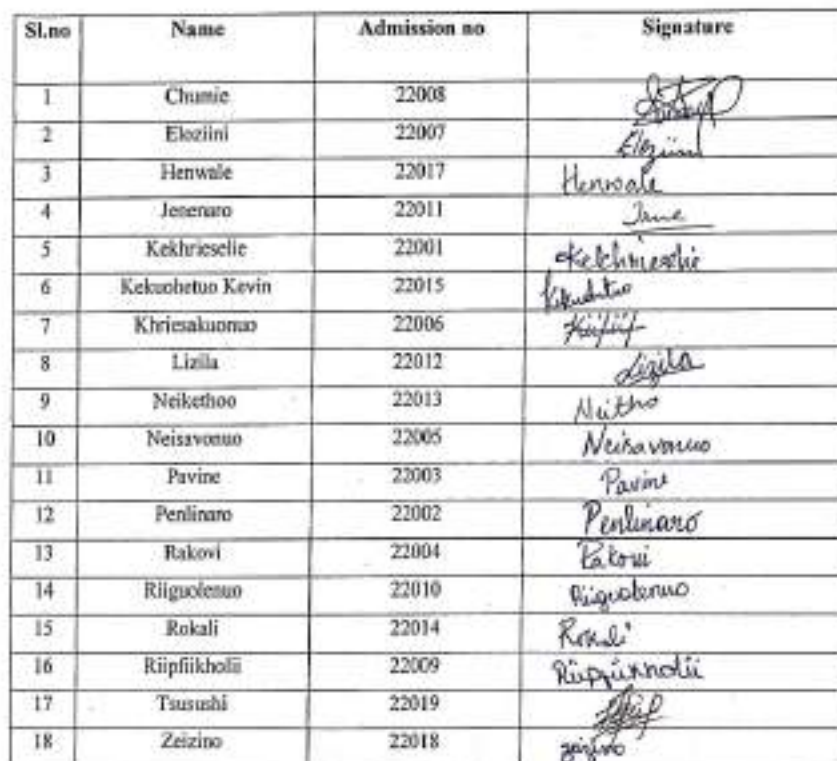 Sl.no Name Admission no Signature
1 Chumie 22008
2 Eloziini 22007 Eloziini
3 Henwale 22017 Henwale
4 Jenenaro 22011 Jane
5 Kekhrieselie 22001 Kekhrieselie
6 Kekuohetuo Kevin 22015
7 Khriesakuonuo 22006
8 Lizila 22012 Lizila
9 Neikethoo 22013 Neitho
10 Neisavonuo 22005 Neisavonuo
11 Pavine 22003 Pavine
12 Penlinaro 22002 Penlinaro
13 Rakovi 22004 Rakovi
14 Riiguolenuo 22010 Riiguolenuo
15 Rokali 22014 Rokali
16 Riipfiikholii 22009 Riipfiikholii
17 Tsusushi 22019
18 Zeizino 22018 zeizino